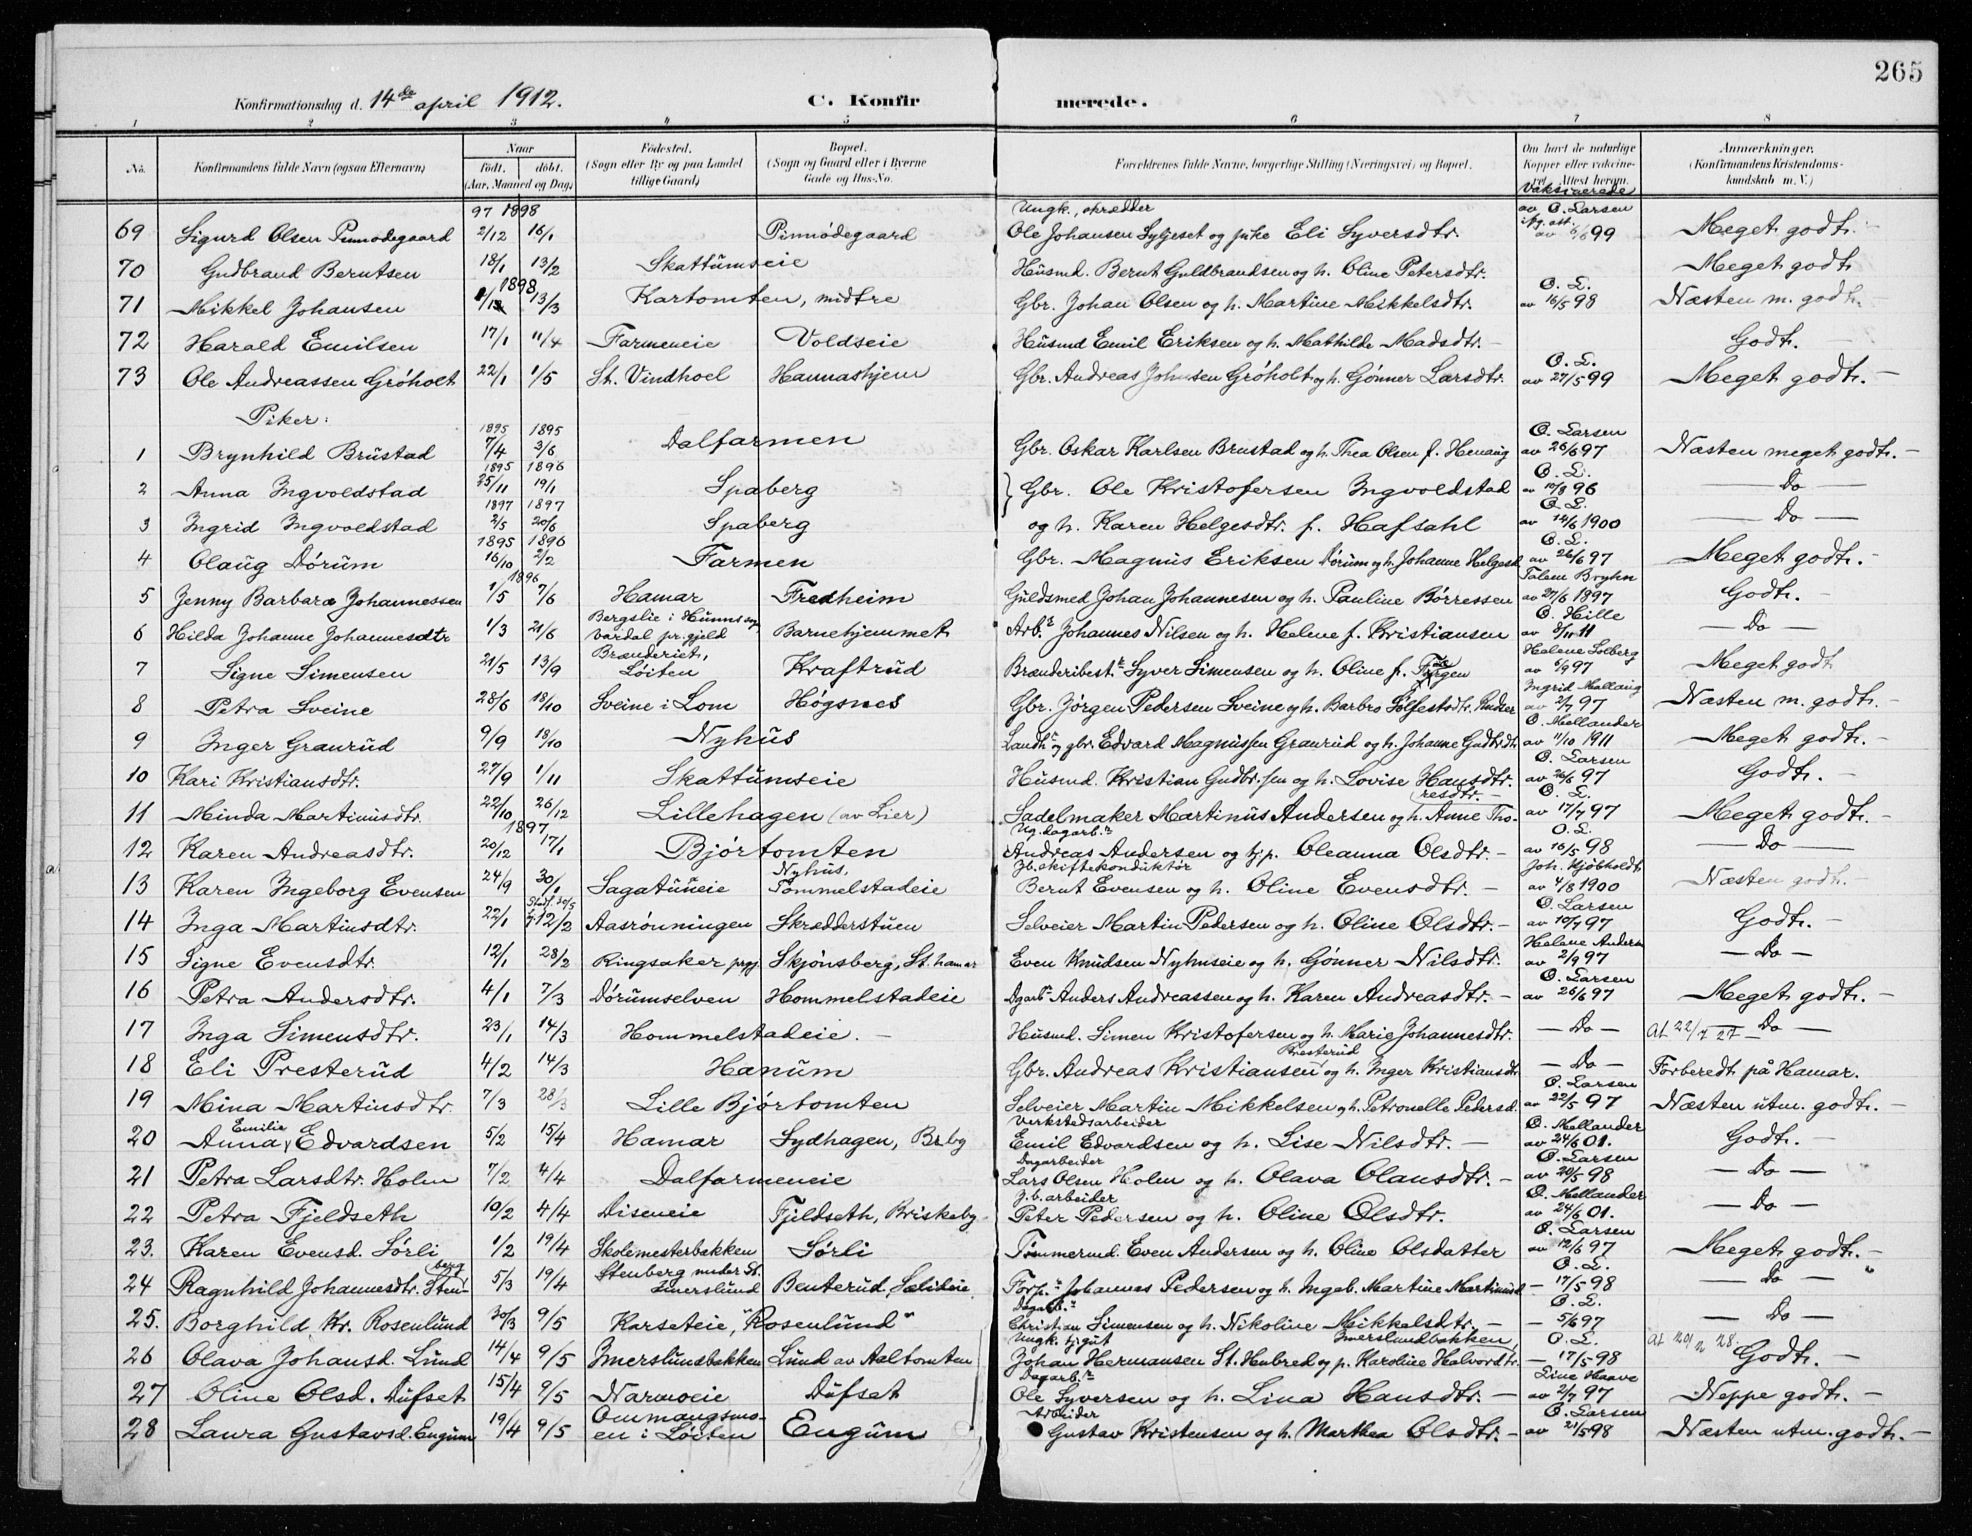 265
Konfirmationsdag d. 14de april 1912. C. Konfirmerede.
1 2 3 4 5 6 7 8
No. Konfirmandens fulde Navn (ogsaa Efternavn) Naar født. døbt. (Aar, Maaned og Dag) Fødested. (Sogn eller By og paa Landet tillige Gaard) Bopæl. (Sogn og Gaard eller i Byerne Gade og Hus-No. Forældrenes fulde Navne, borgerlige Stilling (Næringsvei) og Bopæl. Om havt de naturlige Kopper eller vakcineret. Attest herom. Anmerkninger. (Konfirmandens Kristendomskundskab m. V.)
69 Sigurd Olsen Pinnødegaard 97 2/12 1898 16/1 Pinnødegaard Ungk., skrædder Ole Johansen Syljeset og pike Eli Syversdtr. Vaksinerede av O. Larsen 99 Meget godt. -
70 Gudbrand Berntsen 18/1 13/2 Skattumseie Husmd. Bernt Guldbrandsen og h. Oline Petersdtr. Meget godt
71 Mikkel Johansen 1898 13/3 Kartomten, midtre Gbr. Johan Olsen og h. Martine Mikkelsdtr. O. L. av 16/5 98 Næsten m. godt.
72 Harald Emilsen 17/1 11/4 Farmeneie Voldseie Husmd Emil Eriksen og h. Mathilde Madsdtr. - Godt. -
73 Ole Andreassen Grøholt 22/1 1/5 St. Vindhoel Hannashjem Gbr. Andreas Johansen Grøholt og h. Gønner Larsdtr. O. L. av 27/5 99 Meget godt. -
Piker:
1 Brynhild Brustad 1895 7/4 1895 3/6 Dalfarmen Gbr. Oskar Karlsen Brustad og h. Thea Olsen f. Henaug O. Larsen av 26/6 97 Næsten meget godt. -
2 Anna Ingvoldstad 1895 25/11 1896 19/1 Spaberg Gbr. Ole Kristofersen Ingvoldstad O. L. av 10/8 96 - Do -
3 Ingrid Ingvoldstad 1897 2/5 1897 20/6 Spaberg og h. Karen Helgesdtr. f. Hafsahl O. L. av 12/6 1900 - Do -
4 Olaug Dørum 1895 16/10 1896 2/2 Farmen Gbr. Magnus Eriksen Dørum og h. Johanne Helgesd O. L. av 26/6 97 Meget godt. -
5 Jenny Barbara Johannessen 1896 1/5 7/6 Hamar Fredheim Guldsmed Johan Johannesen og h. Pauline Børressen Bryhn av 27/6 1897 Godt. -
6 Hilda Johanne Johannesdtr 1/3 21/6 Bergslie i Hunns sogn Vardal pr.gjeld Barnehjemmet Arb.r Johannes Nilsen og h. Helene f. Kristiansen O. Hille av 8/11 11 - Do -
7 Signe Simensen 21/5 13/9 Brænderiet, Løiten Kraftrud Brænderibest.r Syver Simensen og h. Oline f. Helene Solberg av 6/9 97 Meget godt
8 Petra Sveine 28/6 18/10 Sveine i Lom Høgsnes Gbr. Jørgen Pedersen Sveine og h. Barbro Ingrid av 2/7 97 Næsten m. godt. -
9 Inger Graurud 9/9 18/10 Nyhus Landh.r og gbr. Edvard Magnussen Graurud og h. Johanne O. Mellander av 11/10 1911 Meget godt. -
10 Kari Kristiansdtr. 27/9 1/11 Skattumseie Husmd. Kristian Gudbr.sen og h. Lovise Hansdtr. O. Larsen av 26/6 97 Godt. -
11 Minda Martinusdtr. 22/10 26/12 Lillehagen (av Lier) Sadelmaker Martinus Andersen og h. Anne Thoresdtr. - O. L. av 17/7 97 Meget godt. -
12 Karen Andreasdtr. 20/12 1897 17/1 Bjørtomten Ug. dagarb.r Andreas Andersen og tj.p. Oleanna Olsdtr. - O. L. av 16/5 98 - Do -
13 Karen Ingeborg Evensen 24/9 30/1 Sagatuneie Nyhus, Tommelstadeie Jb. skiftekonduktør Bernt Evensen og h. Oline Evensdtr. - Joh. Kjøbholdt av 4/8 1900 Næsten godt. -
14 Inga Martinsdtr. 22/1 12/2 Aasrønningen Skrædderstuen Selveier Martin Pedersen og h. Oline Olsdtr. - O. Larsen av 10/7 97 Godt. -
15 Signe Evensdtr. 12/1 28/2 Ringsaker prgj. Skjønsberg, St. hamar Even Knudsen Nyhuseie og h. Gønner Nilsdtr. Helene Anders av 2/9 97 - Do -
16 Petra Andersdtr. 4/1 7/3 Dørumselven Hommelstadeie Dgarb.r Anders Andreassen og h. Karen Andreasdtr. - O. Larsen av 26/6 97 Meget godt. -
17 Inga Simensdtr. 23/1 14/3 Hommelstadeie. - Husmd. Simen Kristofersen og h. Marie Johannesdtr. - Do - At 22/7 27 - Do -
18 Eli Presterud 4/2 14/3 Hanum Gbr. Andreas Kristiansen Presterud og h. Inger Kristiansdtr - Do - Forberedt på Hamar.
19 Mina Martinsdtr. 7/3 28/3 Lille Bjørtomten Selveier Martin Mikkelsen og h. Petronelle Pedersd. O. Larsen av 22/5 97 Næsten utm. godt. -
20 Anna Emilie Edvardsen 5/2 15/4 Hamar Sydhagen, Brbg Verkstedsarbeider Emil Edvardsen og h. Lise Nilsdtr. - O. Mellander av 24/6 01. Godt. -
21 Petra Larsdtr. Holm 7/2 4/4 Dalfarmeneie Dagarbeider Lars Olsen Holm og h. Olava Olausdtr. - O. Larsen av 20/5 98 - Do -
22 Petra Fjeldseth 10/2 4/4 Diseneie Fjeldseth, Briskeby J.b. arbeider Peter Pedersen og h. Oline Olsdtr. O. Mellander av 24/6 01. - Do -
23. Karen Evensd. Sørli 1/2 19/4 Skolemesterbakken Sørli Tømmermd. Even Andersen og h. Oline Olsdatter O. Larsen av 12/6 97 Meget godt. -
24 Ragnhild Johannesdtr. Stenberg 5/3 19/4 Stenberg under St. Imerslund Benterud, Sælideie Forp.r Johannes Pedersen og h. Ingeb. Martine Martinusd O. L. - 17/5 98 - Do -
25. Borghild Kr. Rosenlund 30/3 9/5 Karseteie, "Rosenlund" Dagarb.r Christian Simensen og h. Nikoline Mikkelsdtr. - O. L. - 5/6 97 - Do -
26 Olava Johansd. Lund 14/4 9/5 Imerslundbakken Lund av Aaltomten Ungk. tj.gut Johan Hermansen St. Hubred og p. Karoline Halvordtr. Imerslundbakken O. L. - 17/5 98 At 28. Godt. -
27 Oline Olsd. Dufset 15/4 9/5 Narmoeie Dufset Dagarb.r Ole Syversen og h. Lina Hansdtr. - Line Haave av 2/7 97 Neppe godt. -
28 Laura Gustavsd. Engum 19/4 9/5 Ommangsmoen i Løiten Engum Arbeider Gustav Kristensen og h. Marthea Olsdtr. - O. Larsen av 21/5 98 Næsten utm. godt. -